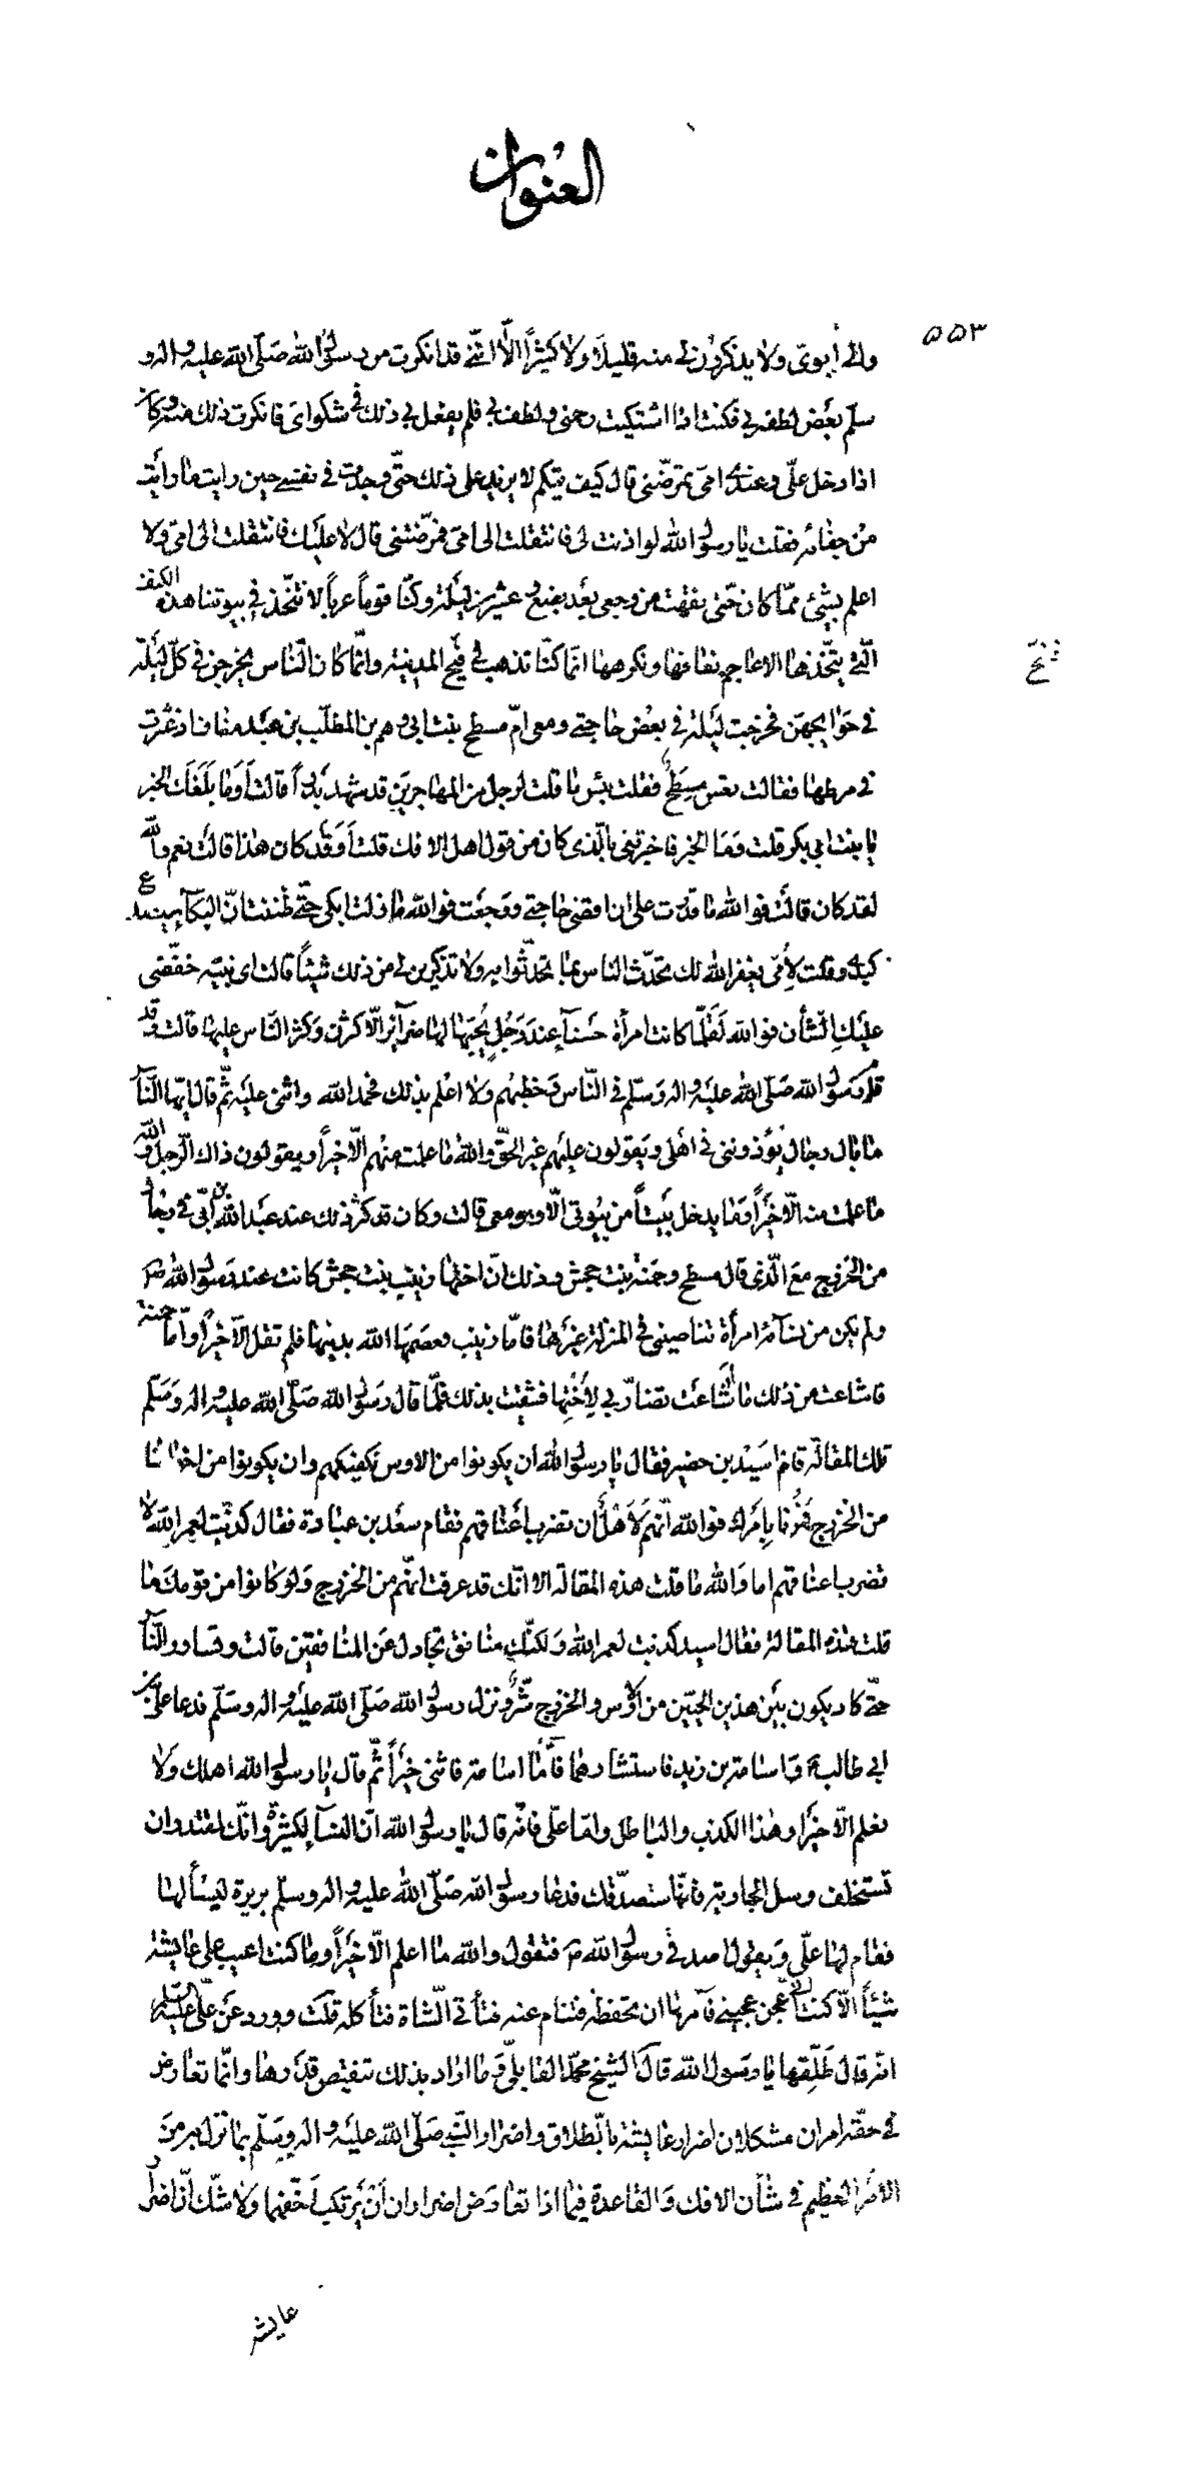 العنوان
٥٥٣
والى أبوىّ ولا يذكرون لى منه قليلاً ولا كثيراً الّا انّنى قد انكرت من رسول الله صلّى الله عليه واله و
سلّم بعض لطفه بى فكنت اذا اشتكيت رحمنى ولطف بى فلم يفعل بى ذلك فى شكواى فانكرت ذلك منه وكان
اذا دخل علىّ وعندى امى تمرّضنى قال كيف تيكم لا يزيد على ذلك حتّى وجدت فى نفسى حين رايت ما رأيت
من جفائه فقلت يا رسول الله لو اذنت لى فانتقلت الى امى فمرّضتنى قال لا عليك فانتقلت الى امى ولا
اعلم بشيئ ممّا كان حتّى نقهت من وجعى بعد بضع و عشرين ليلة وكنّا قوماً عرباً لا نتّخذ فى بيوتنا هذه الكنف
الّتى يتّخذها الاعاجم نعافها ونكرهها انّما كنّا نذهب فى فيح المدينة وانّما كان النّاس يخرجن فى كلّ ليلة
فى حوايجهن فخرجت ليلة فى بعض حاجتى ومعى امّ مسطح بنت ابى رهم بن المطلّب بن عبد مناف اذ عثرت
فى مرطها فقالت تعس مسطح فقلت بئس ما قلت لرجل من المهاجرين قد شهد بدراً قالت أوما بلغك الخبر
يا بنت ابى بكر قلت وما الخبر فاخبرتنى بالّذى كان من قول اهل الافك قلت أوقد كان هذا قالت نعم والله
لقد كان قالت فوالله ما قدرت على ان اقضى حاجتى ورجعت فوالله ما زلت ابكى حتّى ظننت انّ البكآء سيصدع
كبدى وقلت لأمّى يغفر الله لك تحدّث الناس بما تحدّثوا به ولا تذكرين لى من ذلك شيئاً قالت اى بنيّه خفّضى
عليك الشأن فوالله لقلّما كانت امرأة حسنآء عند رجل يحبّها لها ضرآئر الّا كثرن وكثر النّاس عليها قالت وقد
قام رسول الله صلّى الله عليه واله وسلّم فى النّاس فخطبهم ولا اعلم بذلك فحمد الله واثنى عليه ثمّ قال ايّها النّاس
ما بال رجال يؤذوننى فى اهلى ويقولون عليهم غير الحقّ والله ما علمت منهم الّا خيراً ويقولون ذاك الرّجل والله
ما علمت منه الّا خيراً وما يدخل بيتاً من بيوتى الّا وهو معى قالت وكان قد كثر ذلك عند عبد الله بن أبىّ فى رجال
من الخزرج مع الّذى قال مسطح وحمنة بنت جحش وذلك انّ اختها زينب بنت جحش كانت عند رسول الله ص
ولم يكن من نسآئه امرأة تناصينى فى المنزلة غيرها فامّا زينب فعصمها الله بدينها فلم تقل الّا خيراً وامّا حمنة
فاشاعت من ذلك ما اشاعت تضادّنى لأختها فشقيت بذلك فلمّا قال رسول الله صلّى الله عليه واله وسلّم
تلك المقالة قام اسيد بن حضير فقال يا رسول الله ان يكونوا من الاوس نكفيكهم وان يكونوا من اخواننا
من الخزرج فمرنا بأمرك فوالله انّهم لأهل أن تضرب أعناقهم فقام سعد بن عبادة فقال كذبت لعمر الله لا
تضرب اعناقهم اما والله ما قلت هذه المقالة الا انّك قد عرفت انّهم من الخزرج ولو كانوا من قومك ما
قلت هذه المقالة فقال اسيد كذبت لعمر الله ولكنّك منافق تجادل عن المنافقين قالت وتساور النّاس
حتّى كاد يكون بين هذين الحيّين من الأوس والخزرج شرّ ونزل رسول الله صلّى الله عليه واله وسلّم فدعا علىّ بن
ابى طالب واسامة بن زيد فاستشارهما فأمّا اسامة فاثنى خيراً ثمّ قال يا رسول الله اهلك ولا
نعلم الّا خيراً وهذا الكذب والباطل وامّا علىّ فانّه قال يا رسول الله انّ النسآء لكثيرة وانّك لقتدر ان
تستخلف وسل الجارية فانّها ستصدّقك فدعا رسول الله صلّى الله عليه واله وسلّم بريرة ليسألها
فقام لها علىّ ويقول اصدقى رسول الله ص فتقول والله ما اعلم الّا خيراً وما كنت اعيب على عايشة
شيئاً الّا كنت أعجن عجينى فآمرها ان تحفظه فتنام عنه فتأتى الشّاة فتأكله قلت وورد عن علىّ عليه السّلام
انّه قال طلّقها يا رسول الله قال الشيخ محمّد القابلّى وما اراد بذلك تنقيص قدرها وانّما تعارض
فى حقّه امران مشكلان اضرار عايشة بالطلاق واضرار النّبى صلّى الله عليه واله وسلّم بما نزل به من
الأمر العظيم فى شأن الافك والقاعدة فيما اذا تعارض اضراران أن يرتكب أخفّهما ولا شكّ انّ اضرار
عايشه